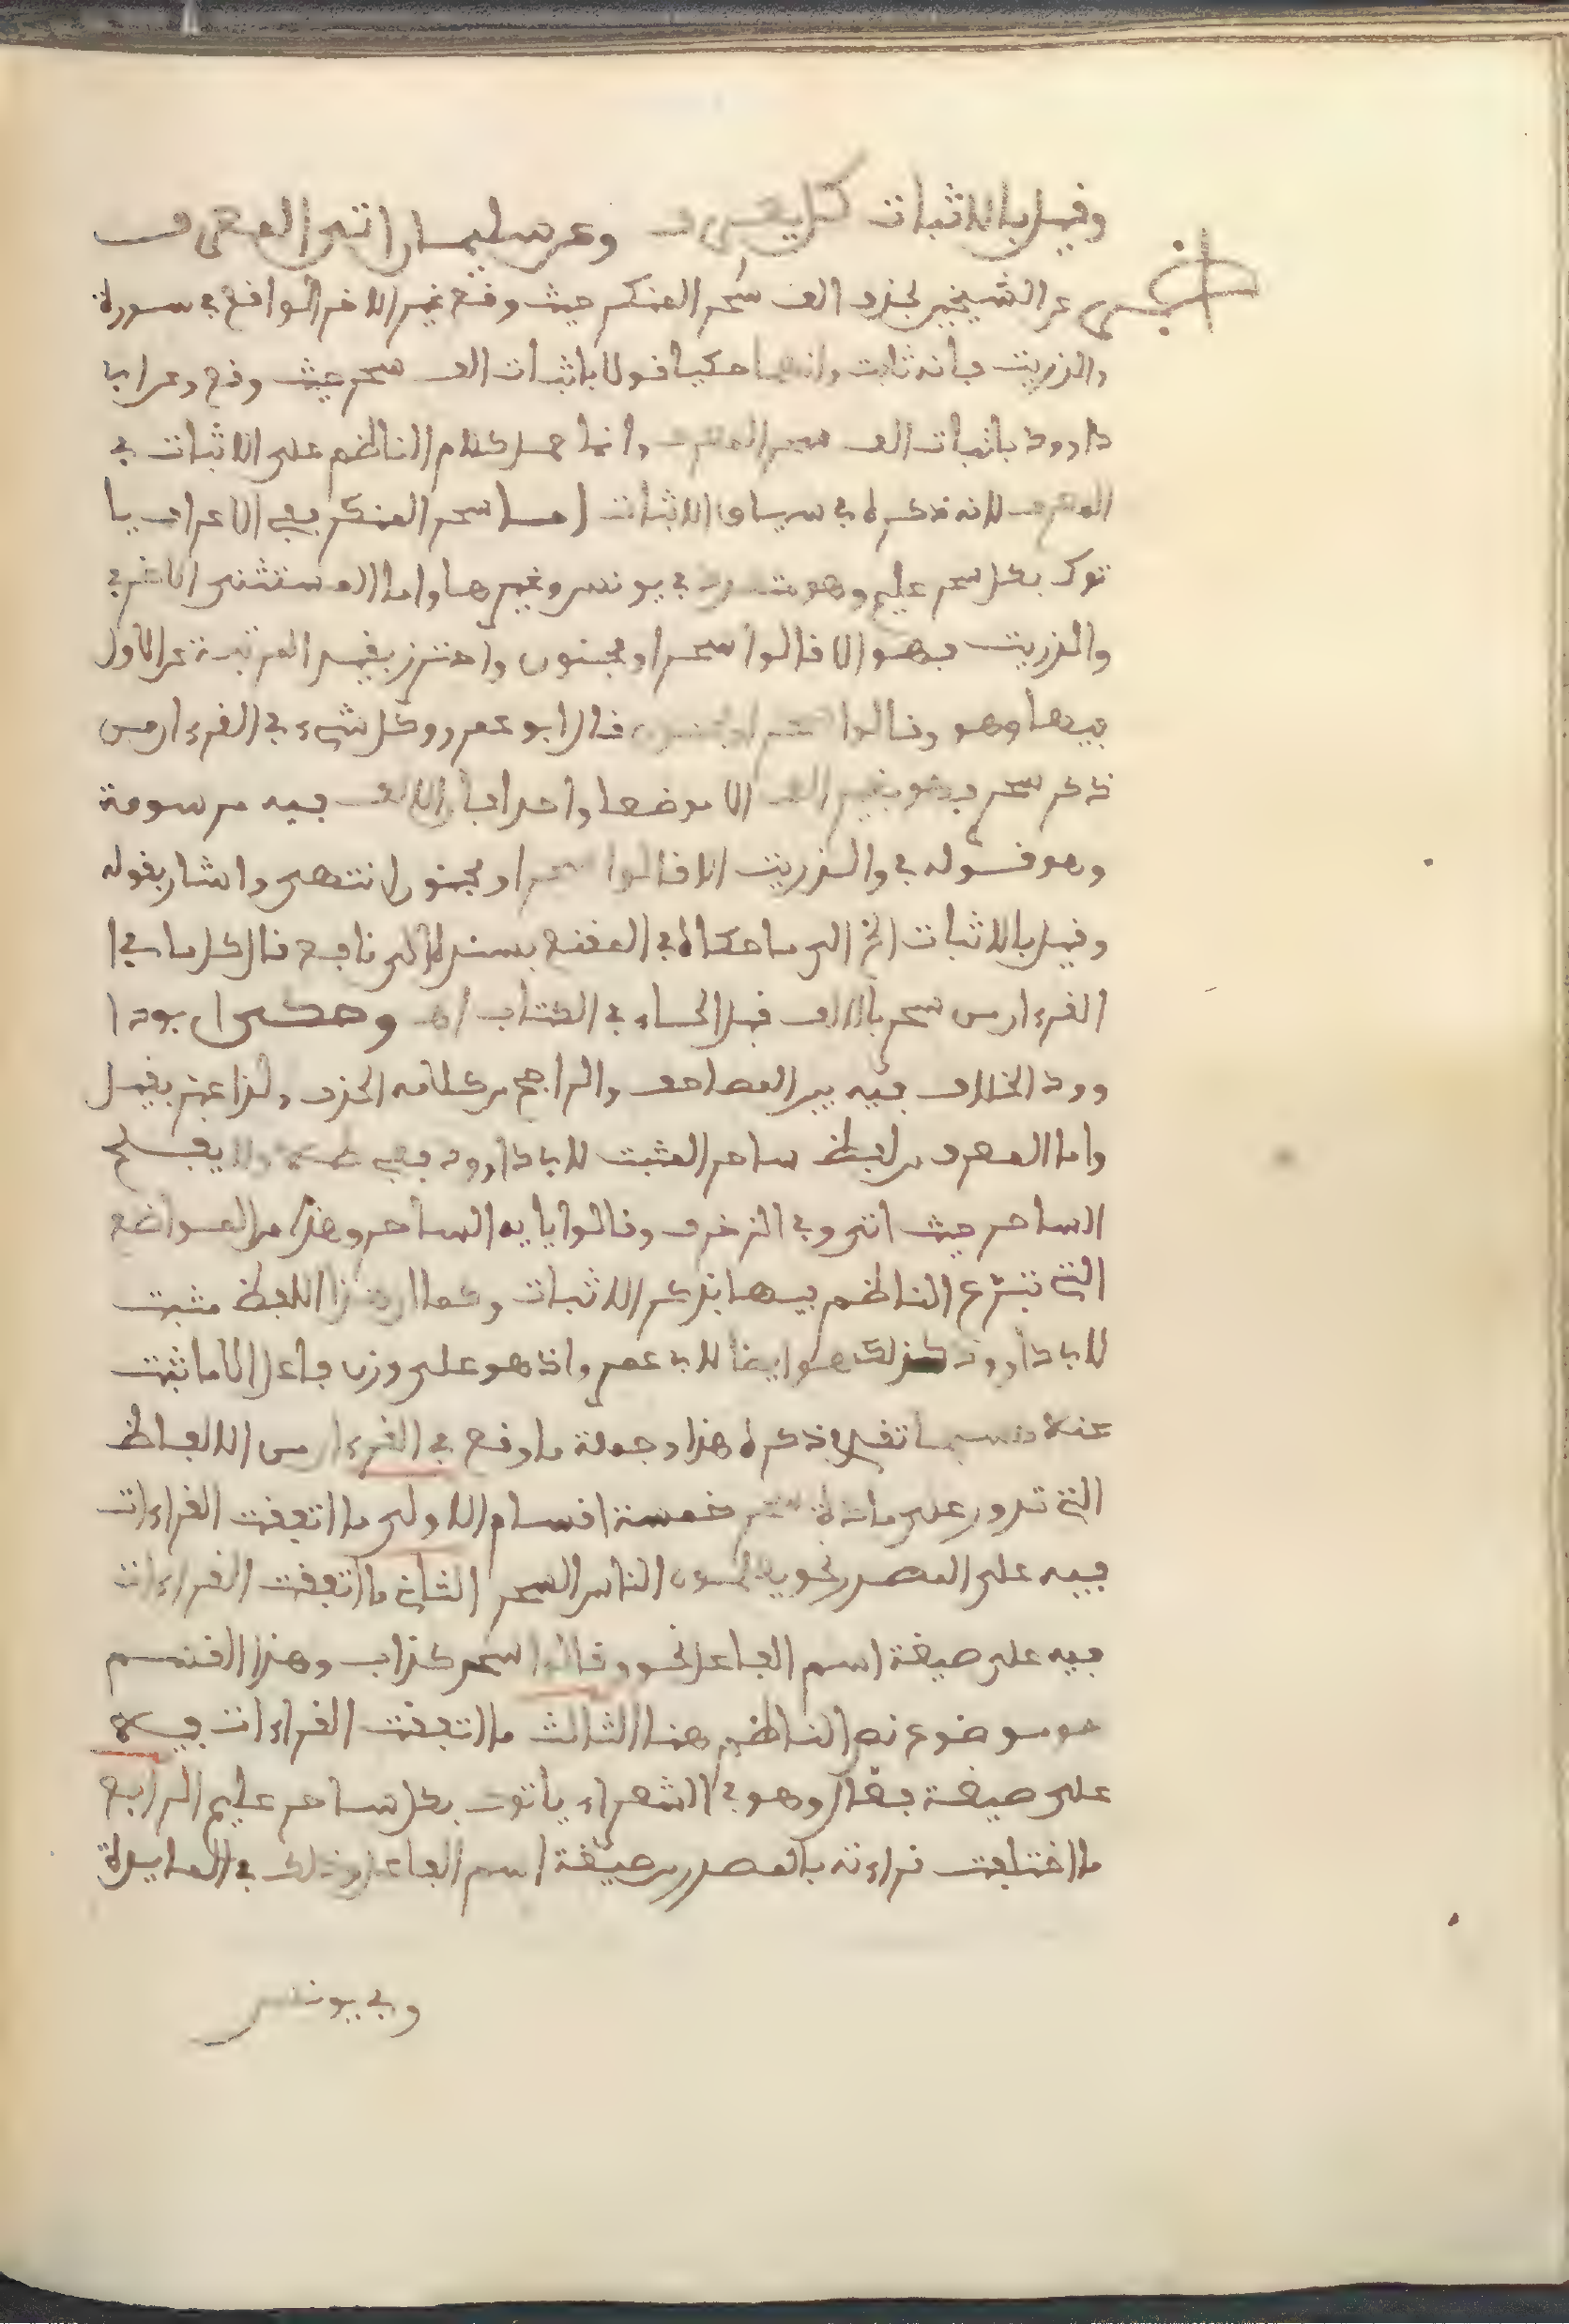 وقيل بالاثبات كل يعرف وعن سليمان اتى المعرف
اخبر عن الشيخين بحذف الف سحر المنكر حيث وقع غير الاخر الواقع في سورة
والذريت فانه ثابت وانهما حكيا قولا باثبات الف سحر حيث وقع وعن ابي
داوود باثبات الف سحر المعرف وانما حمل كلام الناظم على الاثبات في
المعرف لانه ذكره في سياق الاثبات اما سحر المنكر ففي الاعراف يا
توك بكل سحر عليم وهو متعدد في يونس وغيرها واما المستثنى الاخر في
والذريت فهو الا قالوا سحر او مجنون واحترز بقيد المرتبة عن الاول
فيها وهو وقال سحر او مجنون قال ابو عمرو وكل شيء في القرءان من
ذكر سحر فهو بغير الف الا موضعا واحدا فان الالف فيه مرسومة
وهو قوله في والذريت الا قالوا سحر او مجنون انتهى واشار بقوله
وقيل بالاثبات الخ الى ما حكاه في المقنع بسنده الى نافع قال كل ما في ا
القرءان من سحر بالالف قبل الحاء في الكتاب اه وحكى ابو دا
وود الخلاف فيه بين المصاحف والراجح من كلامه الحذف ولذا عبر بقيل
واما المعرف من لفظ ساحر المثبت لابي داوود ففي طه ولا يفلح
الساحر حيث اتى وفي الزخرف وقالوا يايه الساحر وهذا من المواضع
التي تبرع الناظم فيها بذكر الاثبات وكما ان هذا اللفظ مثبت
لابي داوود كذلك هو ايضا لابي عمر واذ هو على وزن فاعل الا ما ثبت
عنه حسبما تقدم ذكره هذا وجملة ما وقع في القرءان من الالفاظ
التي تدور على مادة سحر خمسة اقسام الاولى ما اتفقت القراءات
فيه على المصدر نحو يعلمون الناس السحر الثاني ما اتفقت القراءات
فيه على صيغة اسم الفاعل نحو وقالوا سحر كذاب وهذا القسم
هو موضوع نص الناظم هنا الثالث ما اتفقت القراءات فيه
على صيغة فعال وهو في الشعراء ياتوك بكل ساحر عليم الرابع
ما اختلفت قراءته بالمصدر وصيغة اسم الفاعل وذلك في المايدة
وفي يونس